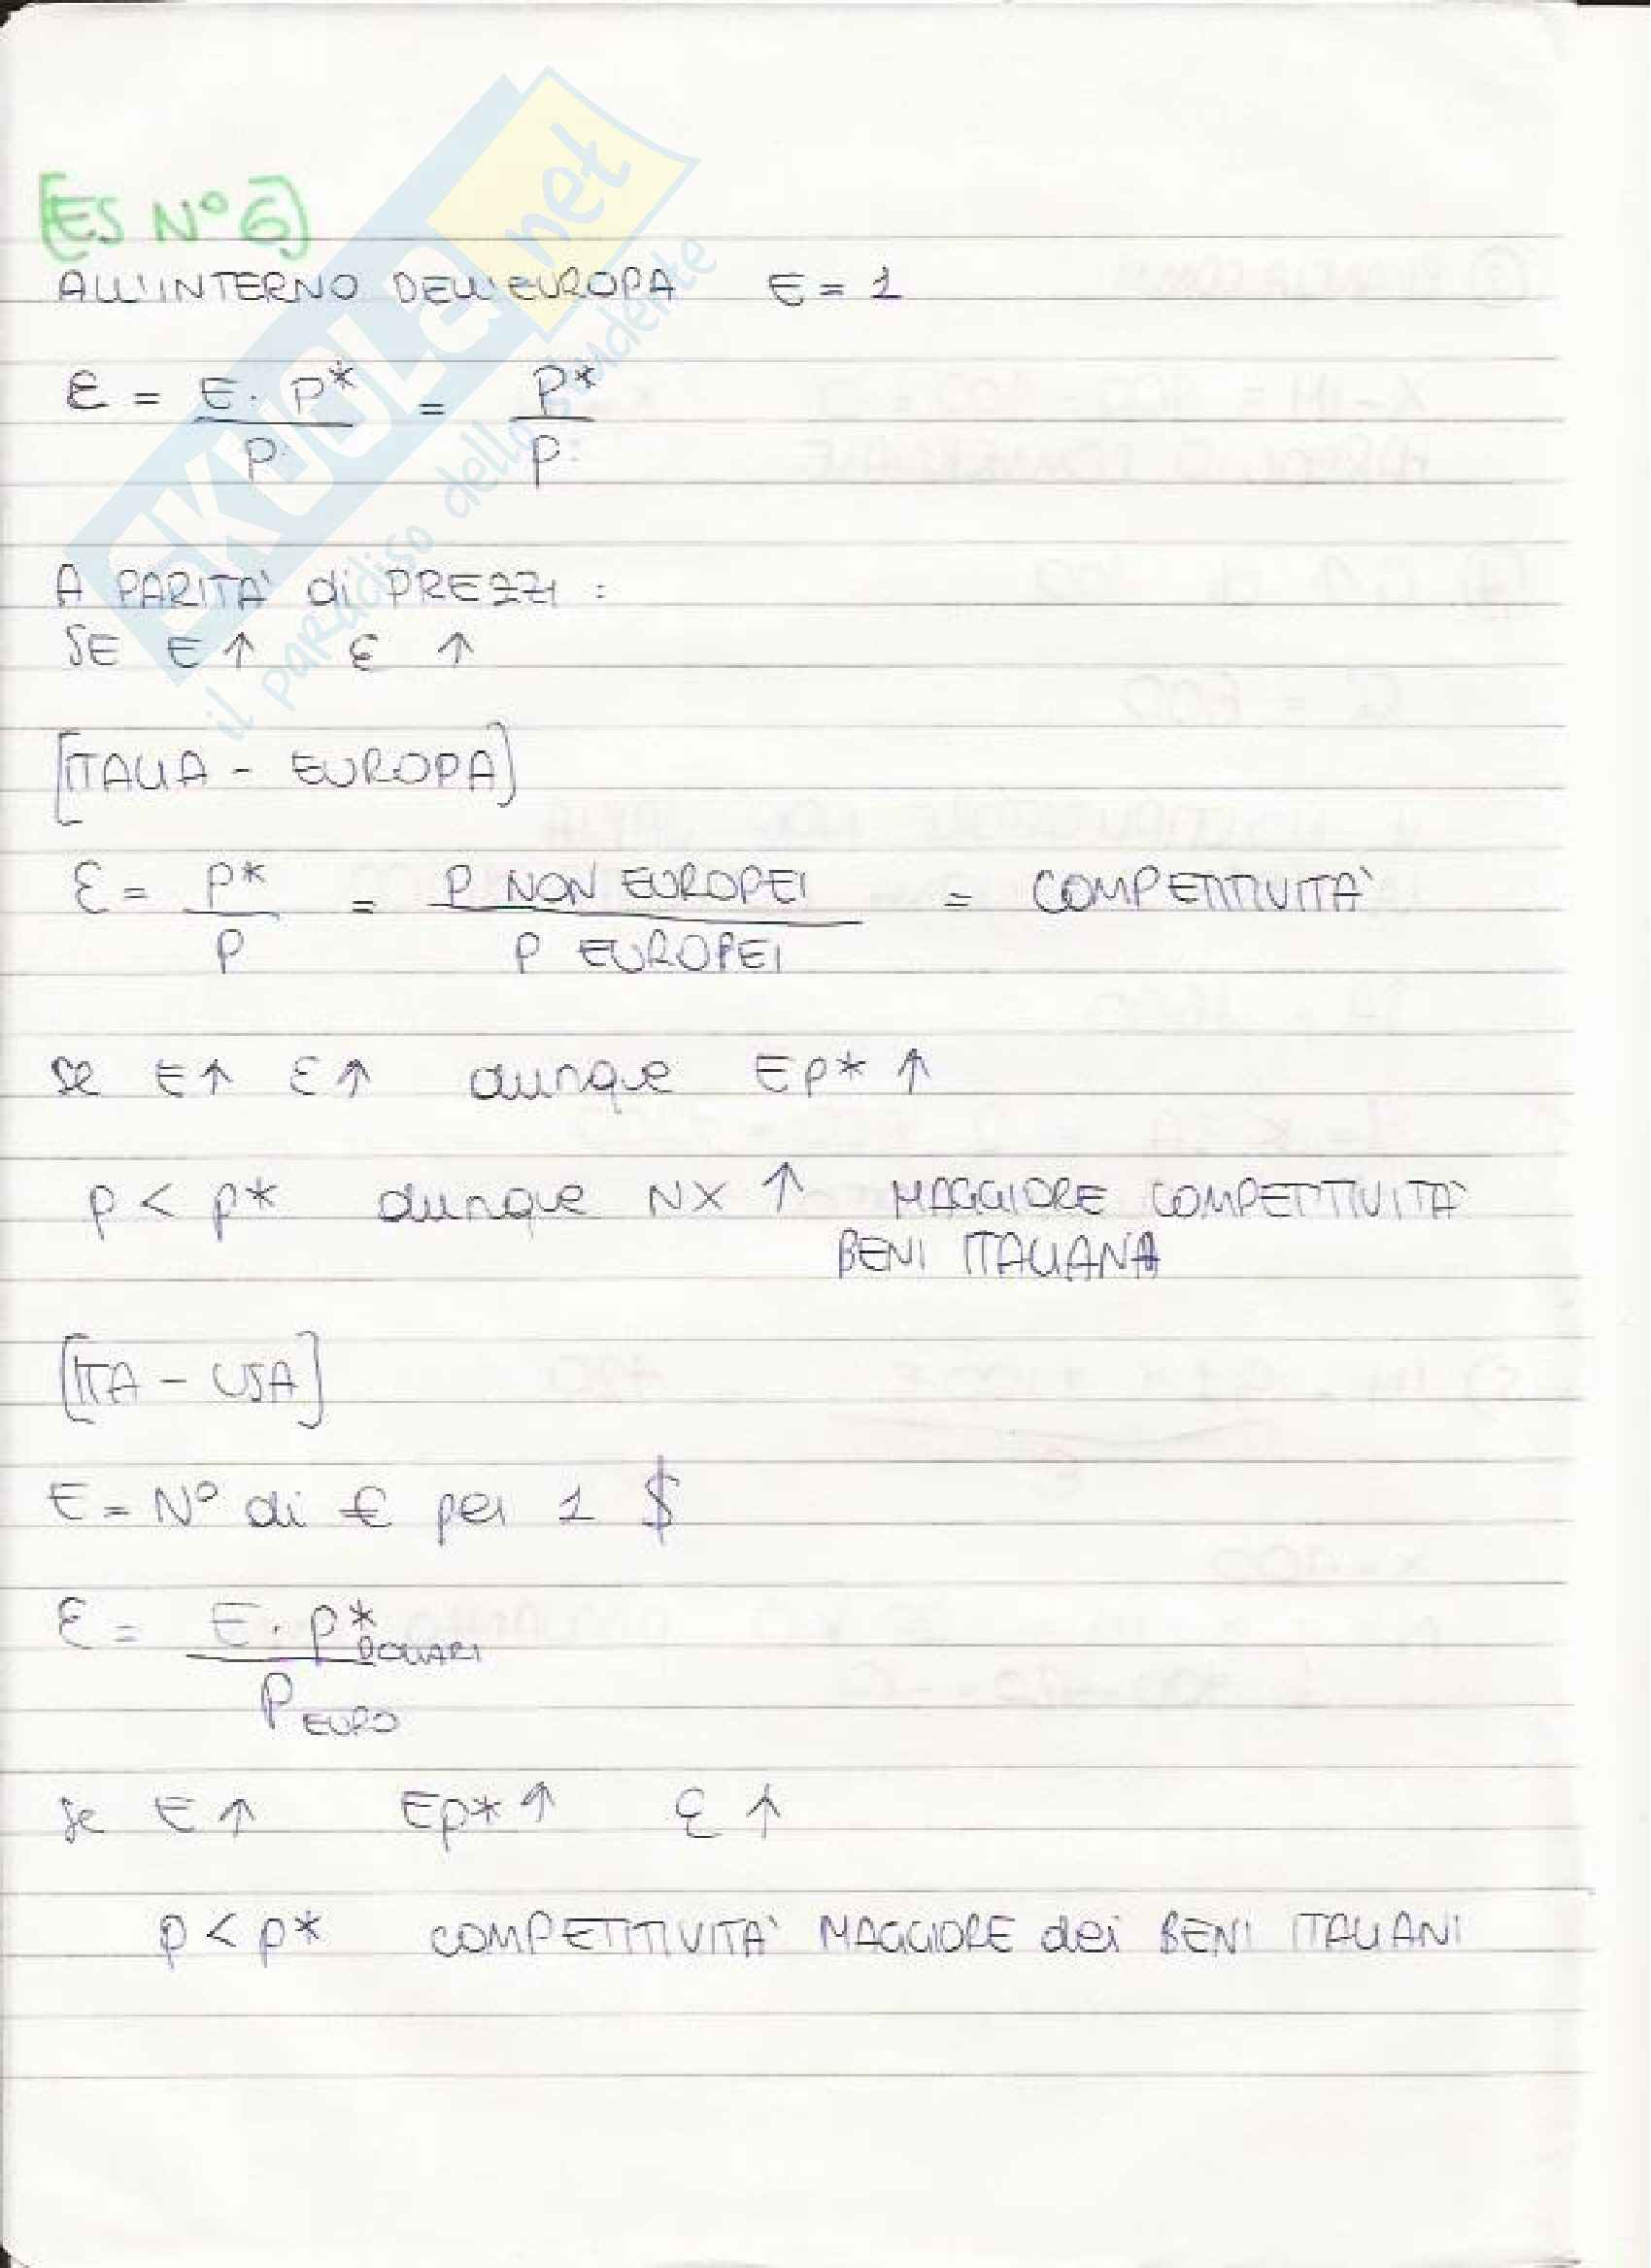 [ES N° 6]
ALL'INTERNO DELL'EUROPA E = 1
ε = E · P* / P = P* / P
A PARITA' di PREZZI :
SE E ↑ ε ↑
[ITALIA - EUROPA]
ε = P* / P = P NON EUROPEI / P EUROPEI = COMPETITIVITA'
se E ↑ ε ↑ dunque EP* ↑
P < P* dunque NX ↑ MAGGIORE COMPETITIVITA'
BENI ITALIANA
[ITA - USA]
E = N° di € per 1 $
ε = E · P* DOLLARI / P EURO
se E ↑ EP* ↑ ε ↑
P < P* COMPETITIVITA' MAGGIORE dei BENI ITALIANI
SKUOLA.net
il paradiso dello studente